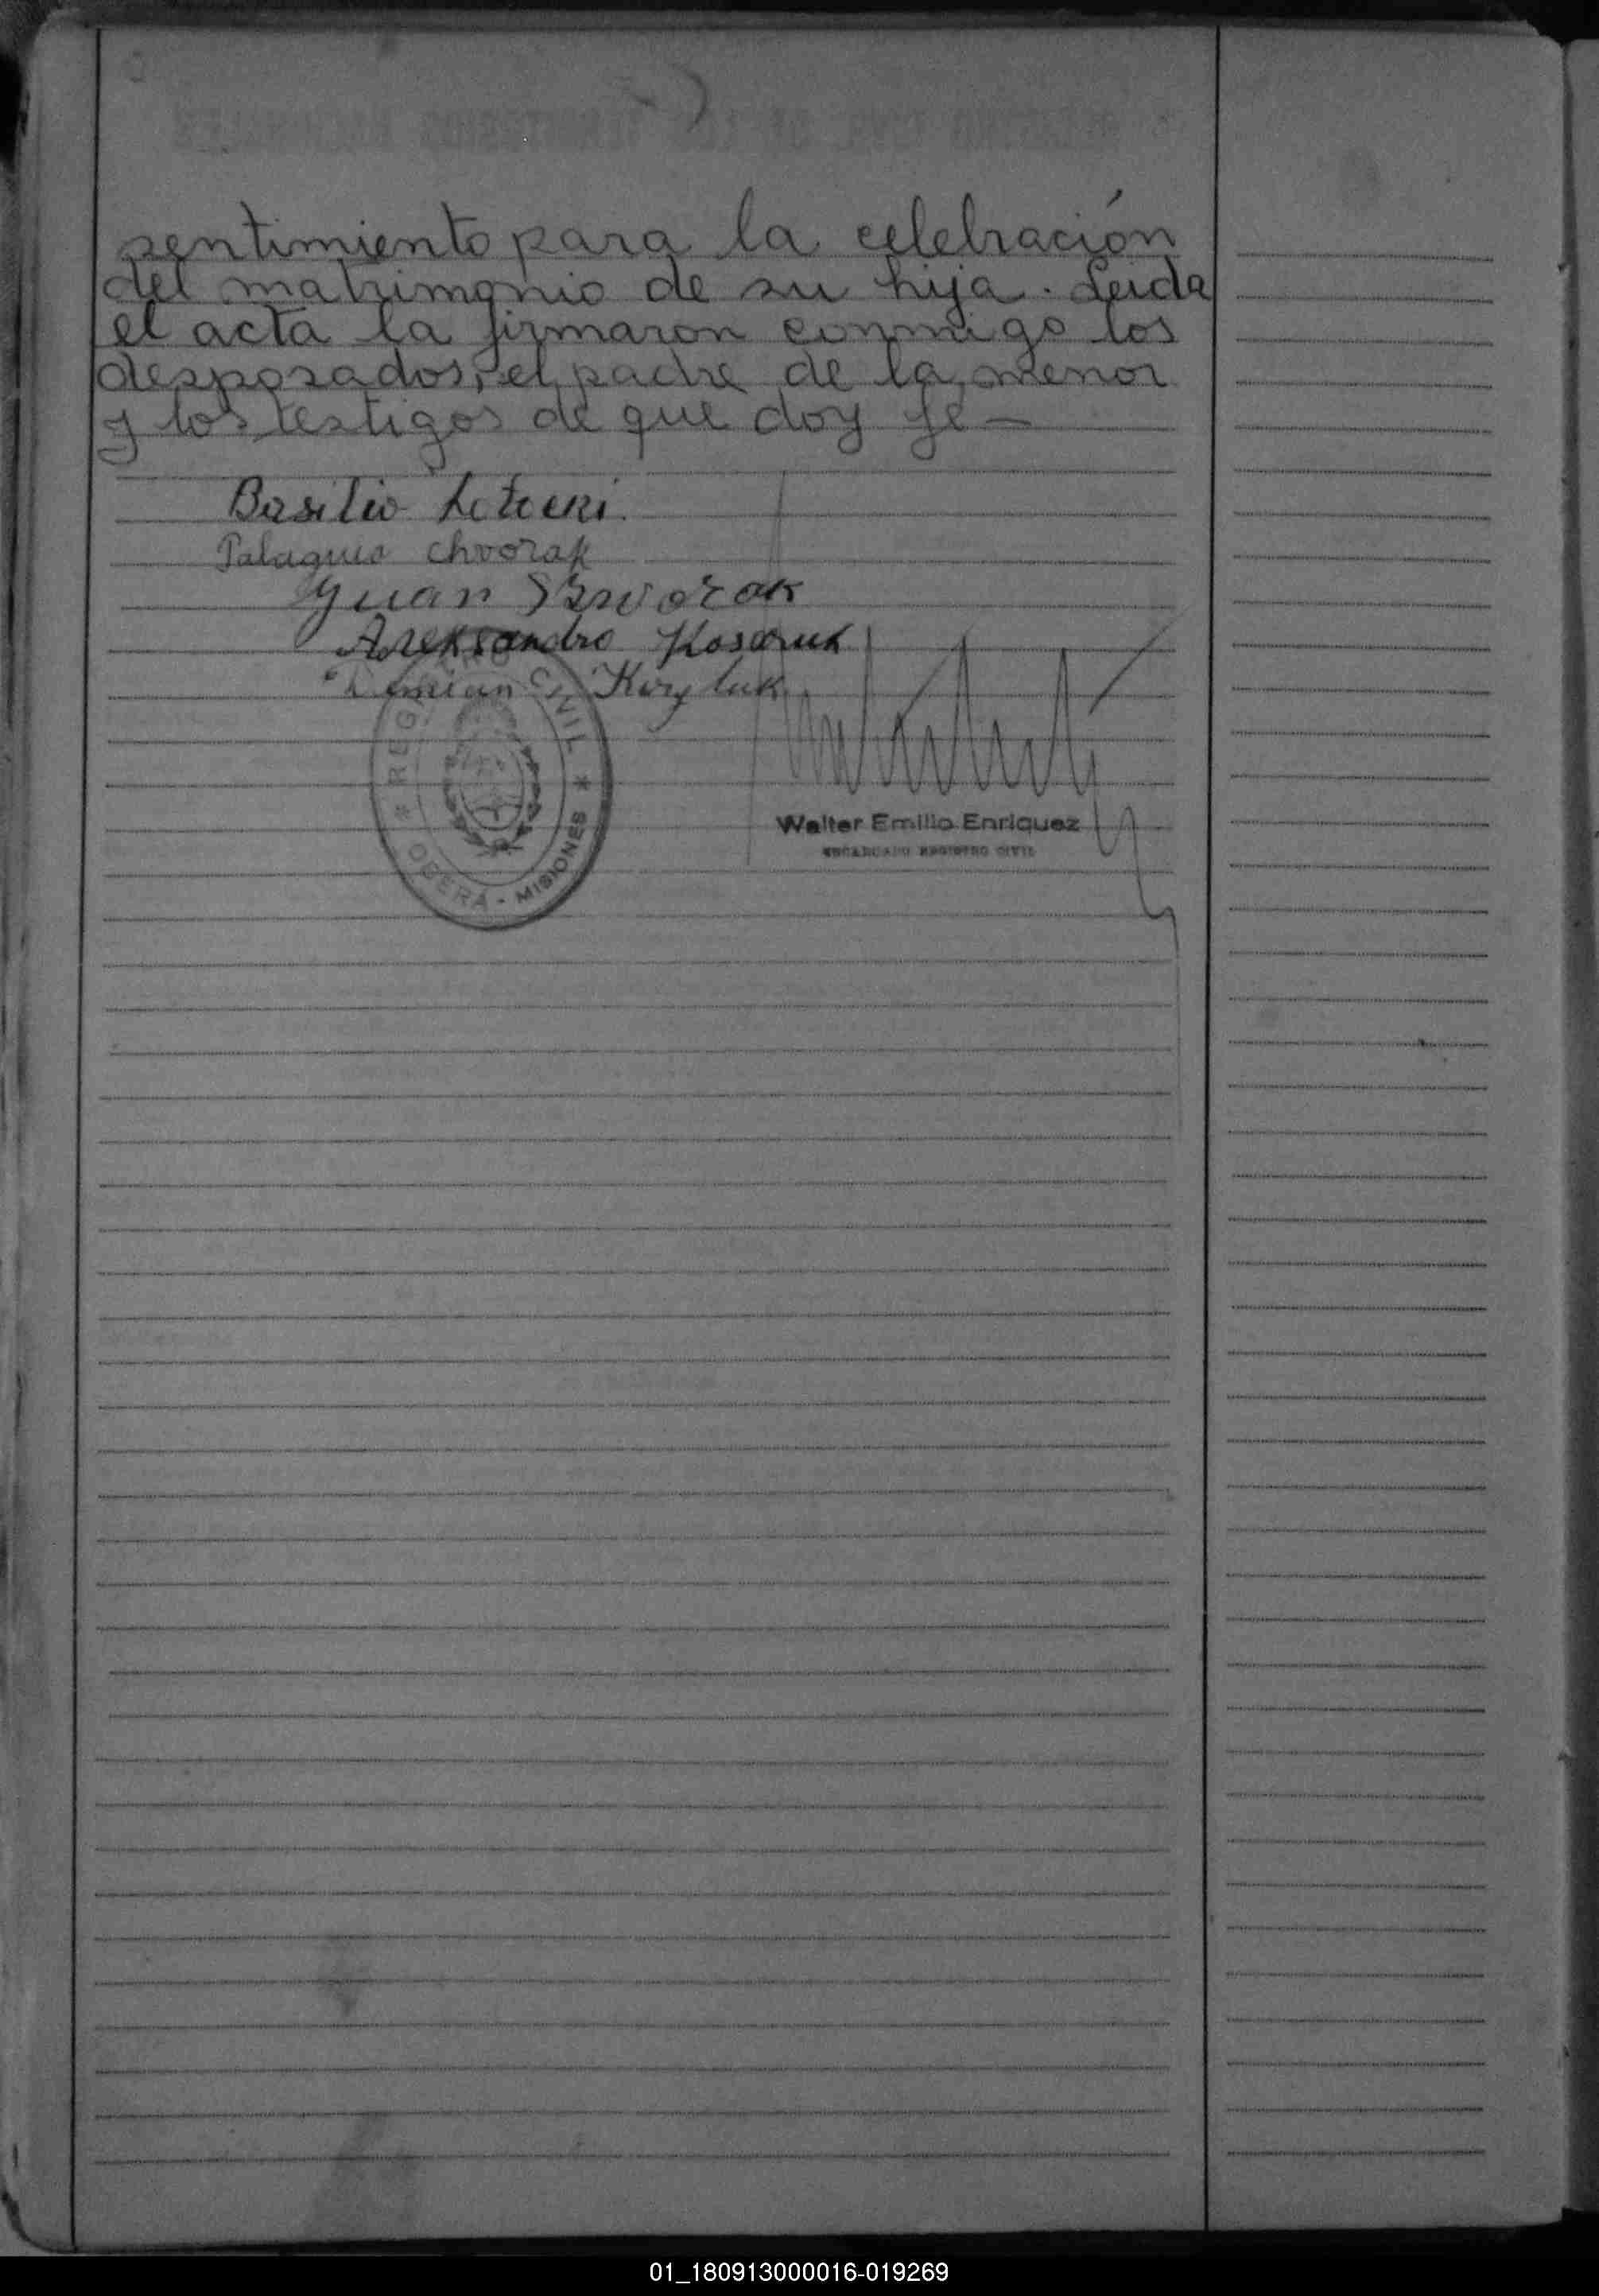 sentimiento para la celebración
del matrimonio de su hija. Leida
el acta la firmaron conmigo los
desposados, el padre de la menor
y los testigos de que doy fe —
Basilio Lotocki.
Palagua Chvorak
Juan Szworak
Aleksandro Kosaruk
Demian Koryluk
REGISTRO CIVIL * OBERÁ - MISIONES *
Walter Emilio Enriquez
ENCARGADO REGISTRO CIVIL
01_180913000016-019269